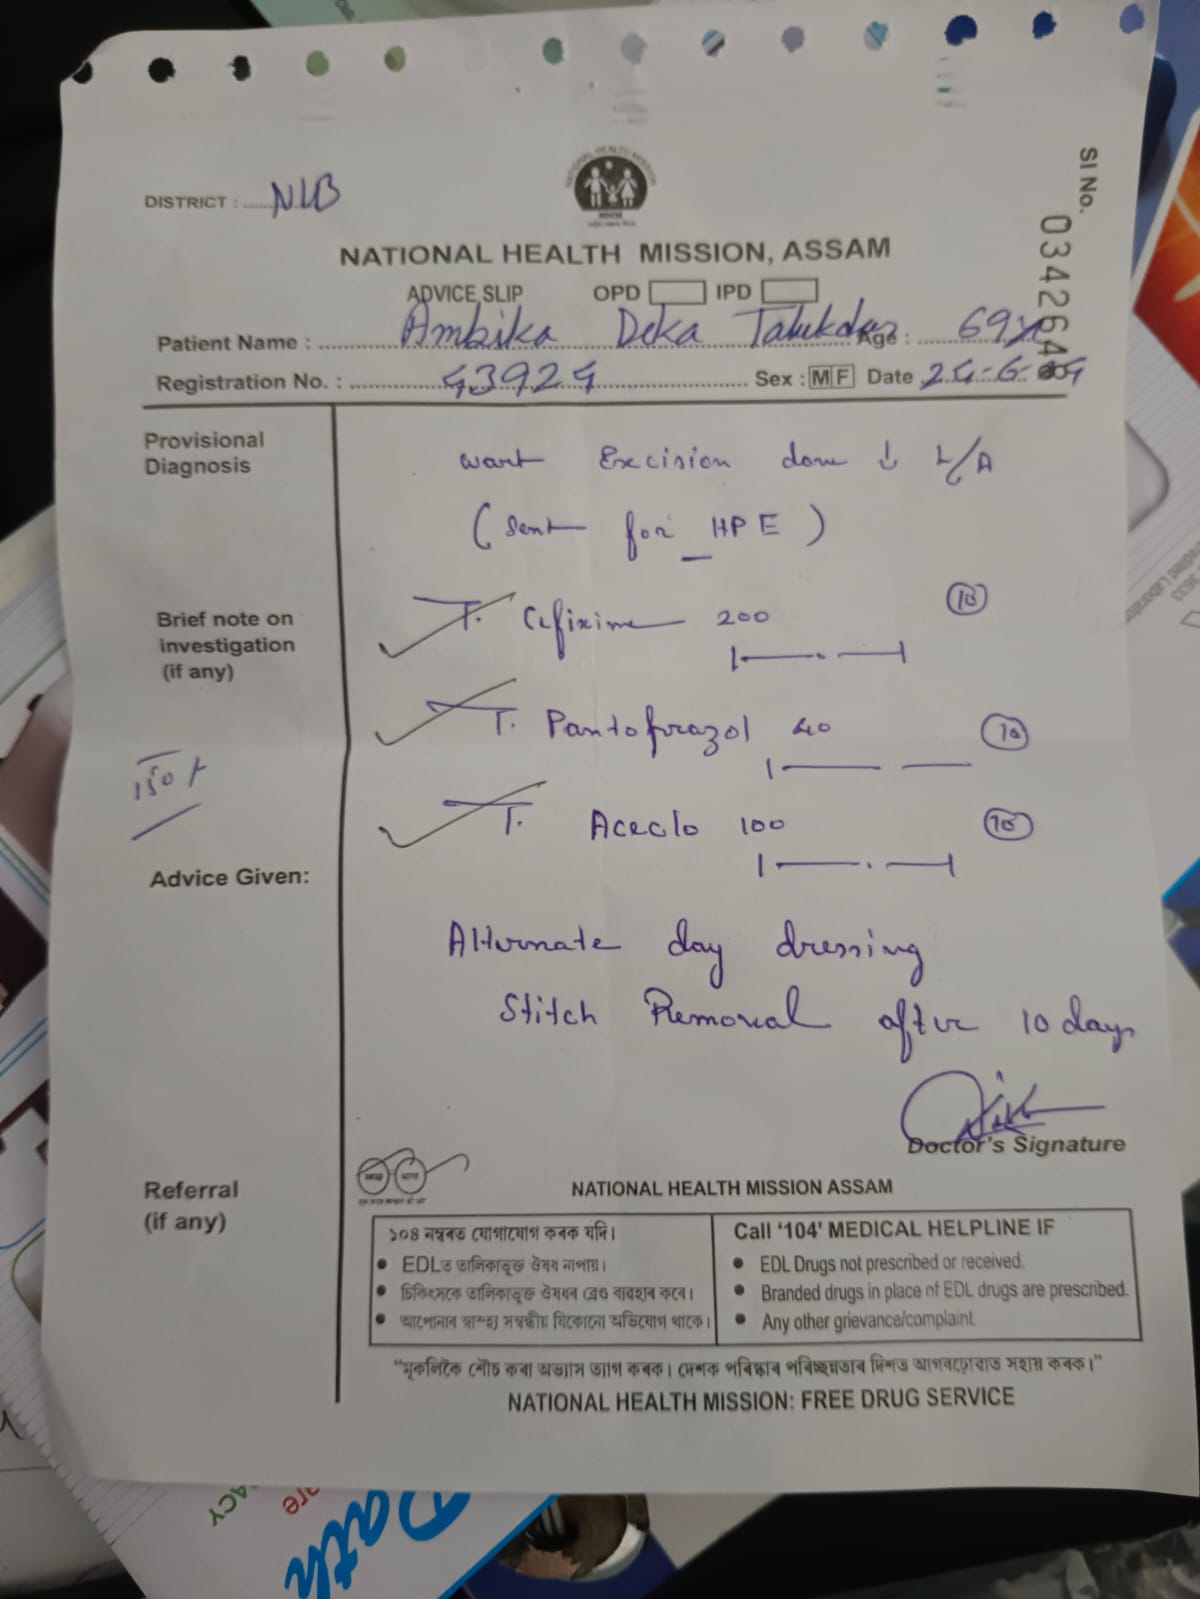 SI No. 0342640
DISTRICT : NLB
NATIONAL HEALTH MISSION, ASSAM
ADVICE SLIP OPD IPD
Patient Name : Ambika Deka Talukdar Age : 69y
Registration No. : 43924 Sex : M F Date 24-6-
Provisional Diagnosis
wart Excision done ↓ L/A
(Sent for HPE)
Brief note on investigation (if any)
T. Cefixime 200 10
T. Pantoprazol 40 10
150/
T. Aceclo 100 10
Advice Given:
Alternate day dressing
Stitch Removal after 10 days
Doctor's Signature
Referral (if any)
NATIONAL HEALTH MISSION ASSAM
১০৪ নম্বৰত যোগাযোগ কৰক যদি।
• EDLত তালিকাভূক্ত ঔষধ নাপায়।
• চিকিৎসকে তালিকাভূক্ত ঔষধৰ ব্ৰেণ্ড ব্যৱহাৰ কৰে।
• আপোনাৰ স্বাস্থ্য সম্বন্ধীয় যিকোনো অভিযোগ থাকে।
Call '104' MEDICAL HELPLINE IF
• EDL Drugs not prescribed or received.
• Branded drugs in place of EDL drugs are prescribed.
• Any other grievance/complaint.
"মুকলিকৈ শৌচ কৰা অভ্যাস ত্যাগ কৰক। দেশক পৰিষ্কাৰ পৰিচ্ছন্নতাৰ দিশত আগবঢ়োৱাত সহায় কৰক।"
NATIONAL HEALTH MISSION: FREE DRUG SERVICE